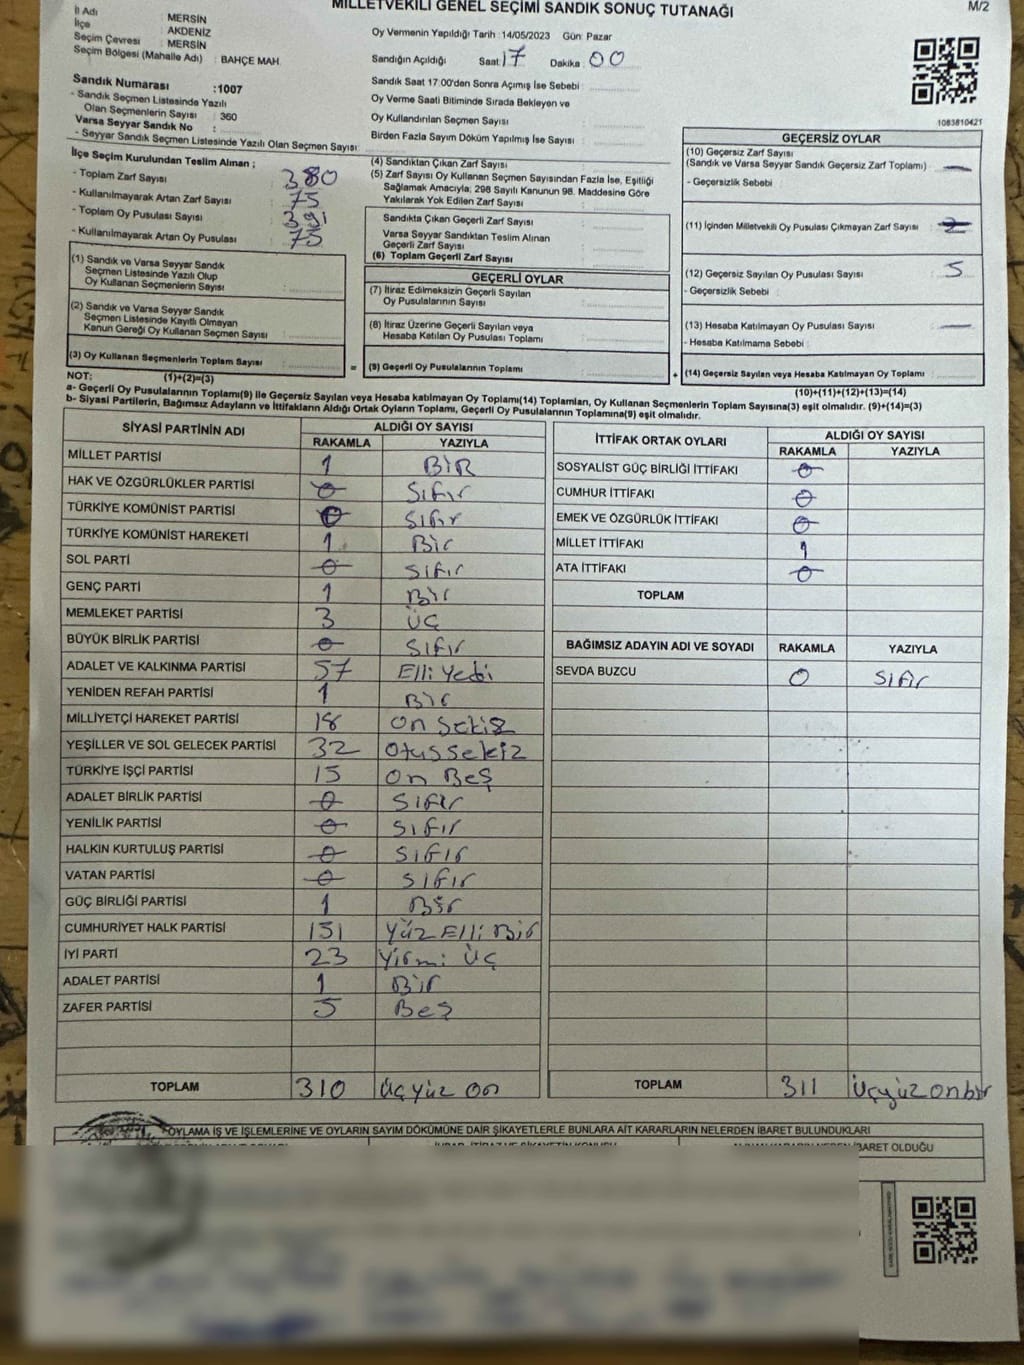 MİLLETVEKİLİ GENEL SEÇİMİ SANDIK SONUÇ TUTANAĞI
M/2
İl Adı : MERSİN
İlçe : AKDENİZ
Seçim Çevresi : MERSİN
Seçim Bölgesi (Mahalle Adı) : BAHÇE MAH.
Oy Vermenin Yapıldığı Tarih : 14/05/2023 Gün: Pazar
Sandığın Açıldığı Saat: 17 Dakika: 00
Sandık Numarası : 1007
- Sandık Seçmen Listesinde Yazılı
Olan Seçmenlerin Sayısı : 360
Varsa Seyyar Sandık No :
- Seyyar Sandık Seçmen Listesinde Yazılı Olan Seçmen Sayısı :
Sandık Saat 17.00'den Sonra Açımış İse Sebebi :
Oy Verme Saati Bitiminde Sırada Bekleyen ve
Oy Kullandırılan Seçmen Sayısı :
Birden Fazla Sayım Döküm Yapılmış İse Sayısı :
1083810421
İlçe Seçim Kurulundan Teslim Alınan ;
- Toplam Zarf Sayısı : 380
- Kullanılmayarak Artan Zarf Sayısı : 75
- Toplam Oy Pusulası Sayısı : 391
- Kullanılmayarak Artan Oy Pusulası : 75
(1) Sandık ve Varsa Seyyar Sandık
Seçmen Listesinde Yazılı Olup
Oy Kullanan Seçmenlerin Sayısı :
(2) Sandık ve Varsa Seyyar Sandık
Seçmen Listesinde Kayıtlı Olmayan
Kanun Gereği Oy Kullanan Seçmen Sayısı :
(3) Oy Kullanan Seçmenlerin Toplam Sayısı :
(4) Sandıktan Çıkan Zarf Sayısı :
(5) Zarf Sayısı Oy Kullanan Seçmen Sayısından Fazla İse, Eşitliği
Sağlamak Amacıyla; 298 Sayılı Kanunun 98. Maddesine Göre
Yakılarak Yok Edilen Zarf Sayısı :
Sandıkta Çıkan Geçerli Zarf Sayısı :
Varsa Seyyar Sandıktan Teslim Alınan
Geçerli Zarf Sayısı :
(6) Toplam Geçerli Zarf Sayısı :
GEÇERLİ OYLAR
(7) İtiraz Edilmeksizin Geçerli Sayılan
Oy Pusulalarının Sayısı :
(8) İtiraz Üzerine Geçerli Sayılan veya
Hesaba Katılan Oy Pusulası Toplamı :
= (9) Geçerli Oy Pusulalarının Toplamı :
GEÇERSİZ OYLAR
(10) Geçersiz Zarf Sayısı
(Sandık ve Varsa Seyyar Sandık Geçersiz Zarf Toplamı) : —
- Geçersizlik Sebebi :
(11) İçinden Milletvekili Oy Pusulası Çıkmayan Zarf Sayısı :
(12) Geçersiz Sayılan Oy Pusulası Sayısı : 5
- Geçersizlik Sebebi :
(13) Hesaba Katılmayan Oy Pusulası Sayısı : —
- Hesaba Katılmama Sebebi :
+ (14) Geçersiz Sayılan veya Hesaba Katılmayan Oy Toplamı :
NOT: (1)+(2)=(3)
(10)+(11)+(12)+(13)=(14)
a- Geçerli Oy Pusulalarının Toplamı(9) ile Geçersiz Sayılan veya Hesaba katılmayan Oy Toplamı(14) Toplamları, Oy Kullanan Seçmenlerin Toplam Sayısına(3) eşit olmalıdır. (9)+(14)=(3)
b- Siyasi Partilerin, Bağımsız Adayların ve İttifakların Aldığı Ortak Oyların Toplamı, Geçerli Oy Pusulalarının Toplamına(9) eşit olmalıdır.
SİYASİ PARTİNİN ADI ALDIĞI OY SAYISI
RAKAMLA YAZIYLA
MİLLET PARTİSİ 1 BİR
HAK VE ÖZGÜRLÜKLER PARTİSİ 0 Sıfır
TÜRKİYE KOMÜNİST PARTİSİ 0 Sıfır
TÜRKİYE KOMÜNİST HAREKETİ 1 Bir
SOL PARTİ 0 Sıfır
GENÇ PARTİ 1 Bir
MEMLEKET PARTİSİ 3 Üç
BÜYÜK BİRLİK PARTİSİ 0 Sıfır
ADALET VE KALKINMA PARTİSİ 57 Elli Yedi
YENİDEN REFAH PARTİSİ 1 Bir
MİLLİYETÇİ HAREKET PARTİSİ 18 On Sekiz
YEŞİLLER VE SOL GELECEK PARTİSİ 32 Otussekiz
TÜRKİYE İŞÇİ PARTİSİ 15 On Beş
ADALET BİRLİK PARTİSİ 0 Sıfır
YENİLİK PARTİSİ 0 Sıfır
HALKIN KURTULUŞ PARTİSİ 0 Sıfır
VATAN PARTİSİ 0 Sıfır
GÜÇ BİRLİĞİ PARTİSİ 1 Bir
CUMHURİYET HALK PARTİSİ 151 Yüz Elli Bir
İYİ PARTİ 23 Yirmi Üç
ADALET PARTİSİ 1 Bir
ZAFER PARTİSİ 5 Beş
TOPLAM 310 Üç yüz On
İTTİFAK ORTAK OYLARI ALDIĞI OY SAYISI
RAKAMLA YAZIYLA
SOSYALİST GÜÇ BİRLİĞİ İTTİFAKI 0
CUMHUR İTTİFAKI 0
EMEK VE ÖZGÜRLÜK İTTİFAKI 0
MİLLET İTTİFAKI 1
ATA İTTİFAKI 0
TOPLAM
BAĞIMSIZ ADAYIN ADI VE SOYADI RAKAMLA YAZIYLA
SEVDA BUZCU 0 Sıfır
TOPLAM 311 Üçyüz onbir
OYLAMA İŞ VE İŞLEMLERİNE VE OYLARIN SAYIM DÖKÜMÜNE DAİR ŞİKAYETLERLE BUNLARA AİT KARARLARIN NELERDEN İBARET BULUNDUKLARI
İBARET OLDUĞU